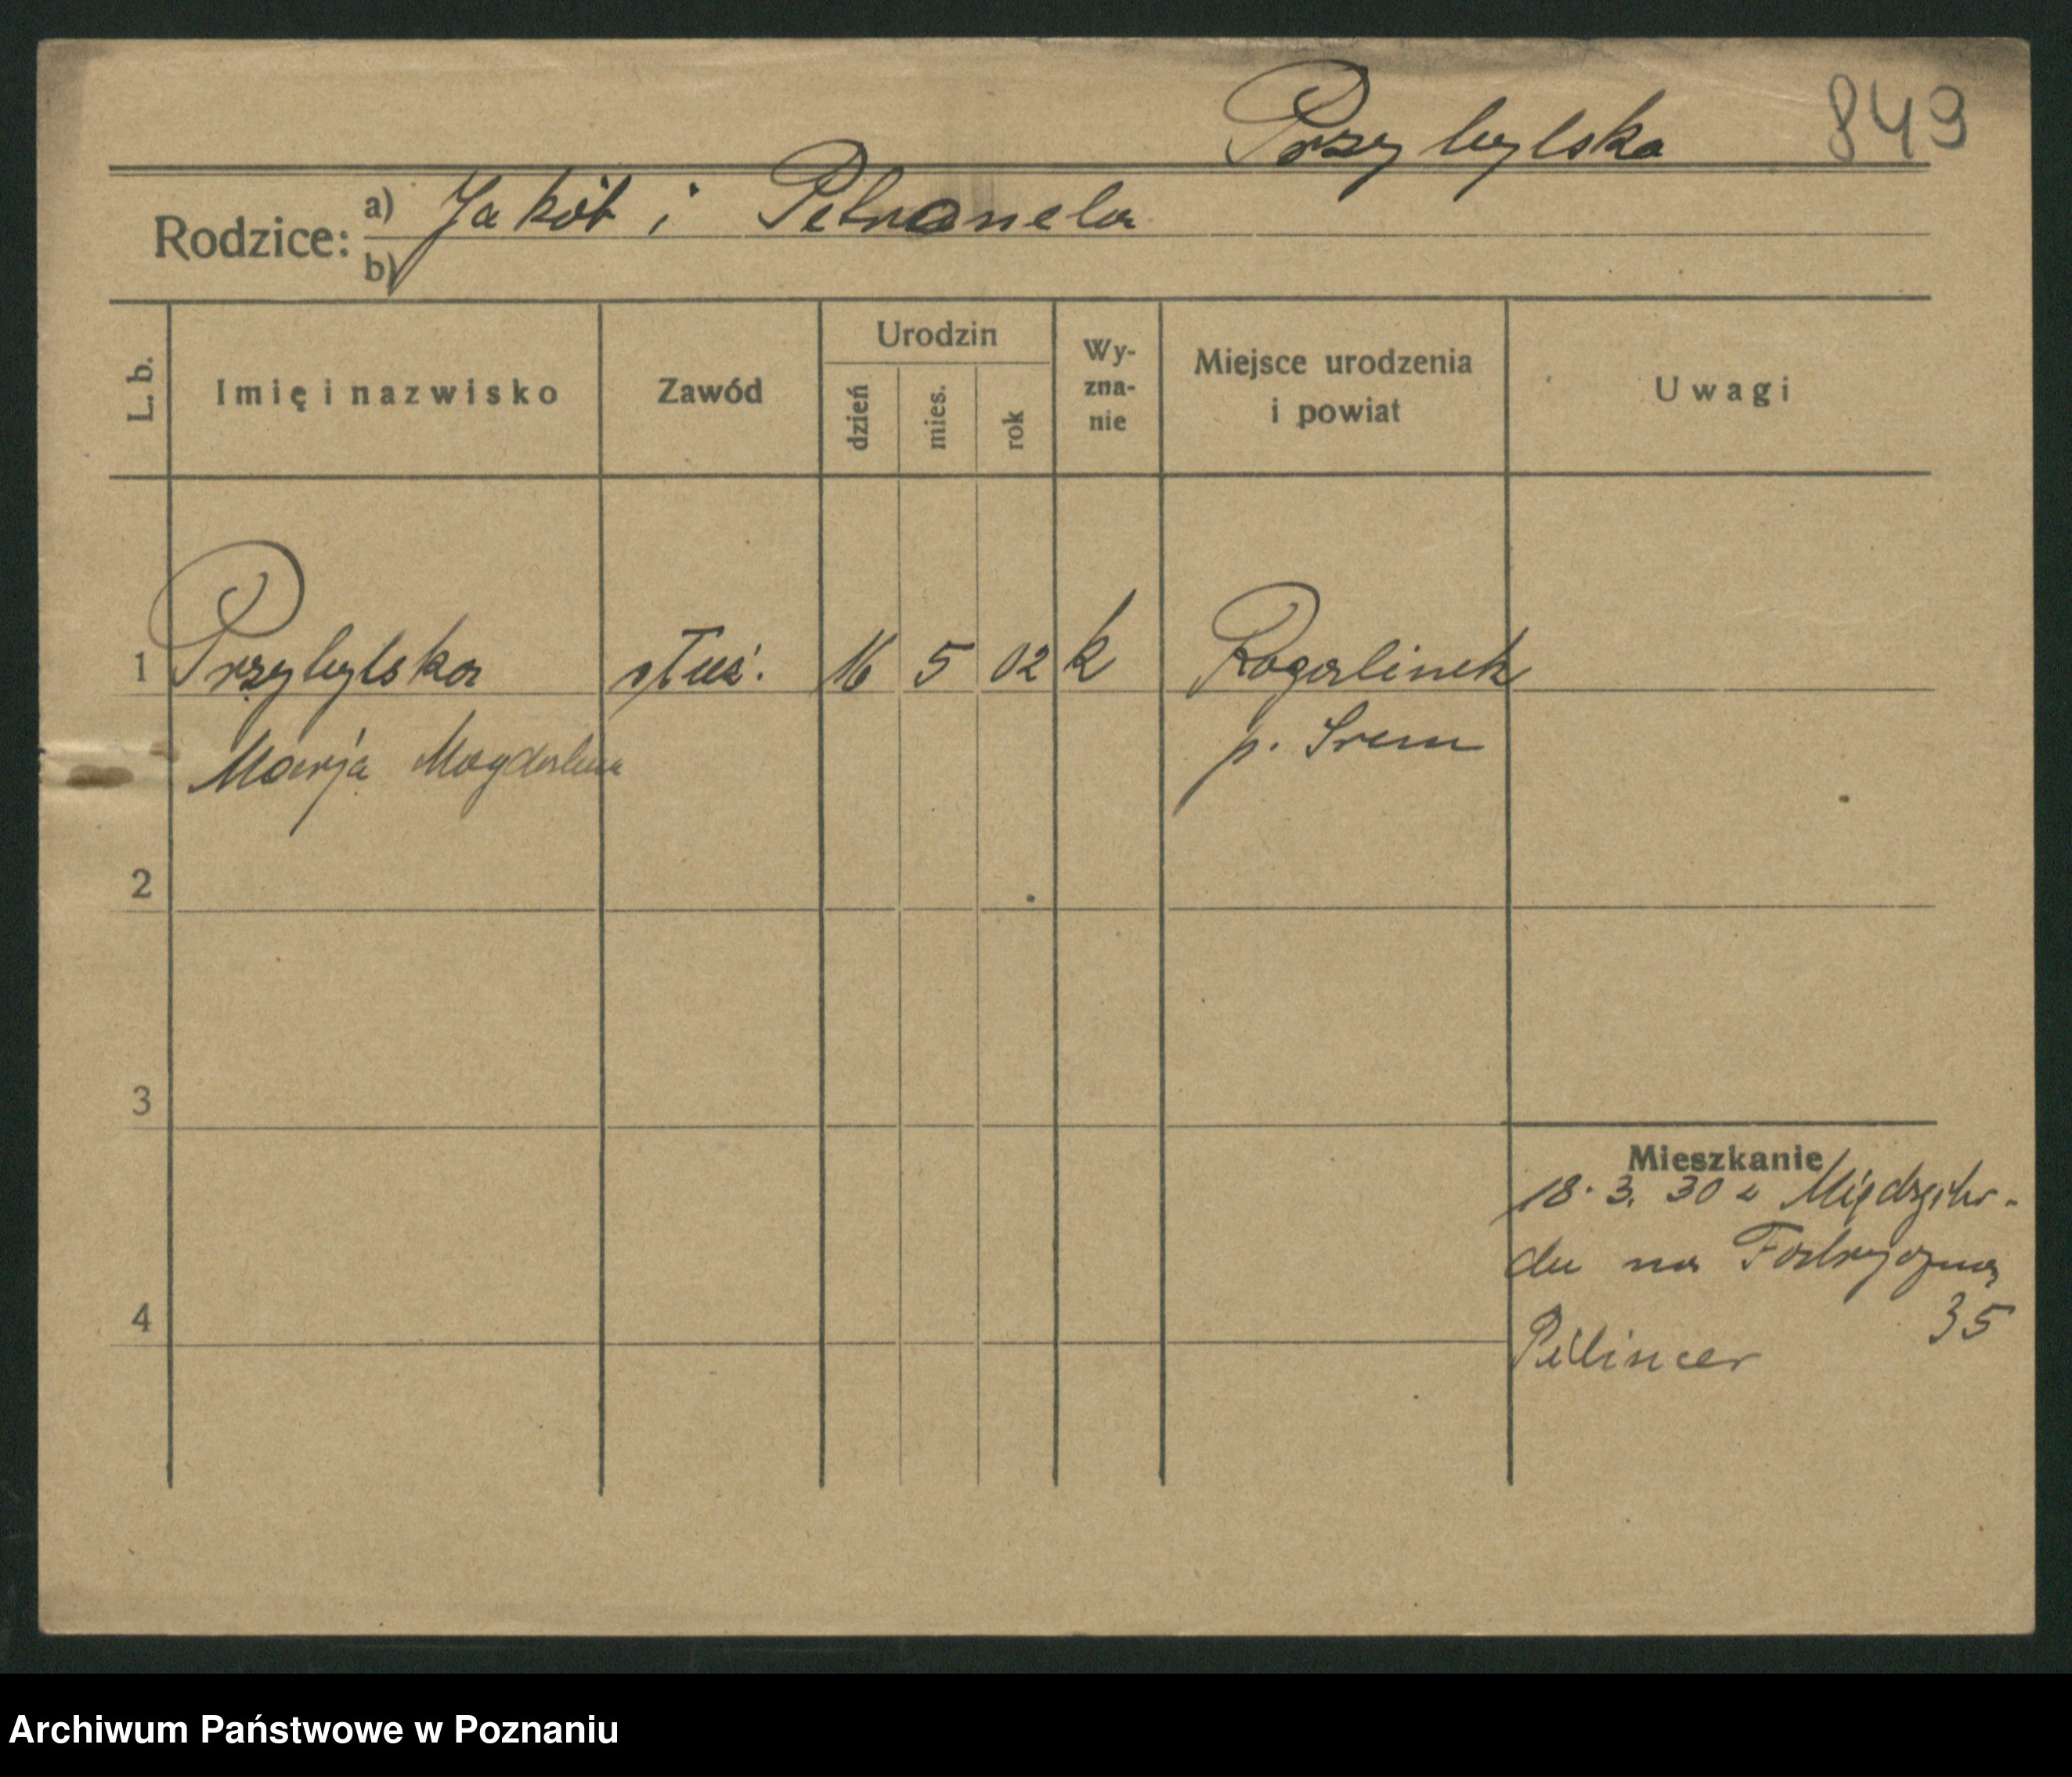 Przybylska 849
Rodzice: a) Jakób i Petronela
b)
L. b. Imię i nazwisko Zawód Urodzin dzień mies. rok Wy-zna-nie Miejsce urodzenia i powiat Uwagi
1 Przybylska służ. 16 5 02 k Rogalinek
Marja Magdalena p. Śrem
2
3
Mieszkanie
18. 3. 30 z Międzycho-
du na Fabryczną
4 35
Archiwum Państwowe w Poznaniu